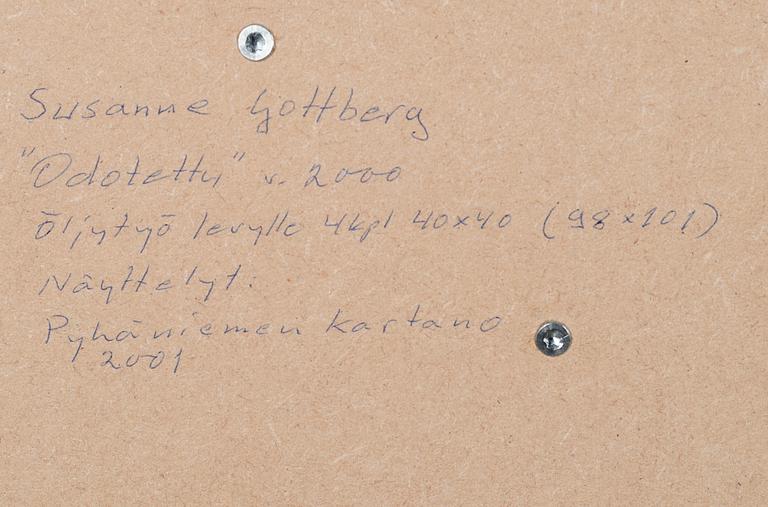 Susanne Gottberg
"Odotettu" v. 2000
Öljytyö levylle 4kpl 40x40 (98x101)
Näyttelyt:
Pyhäniemen kartano
2001